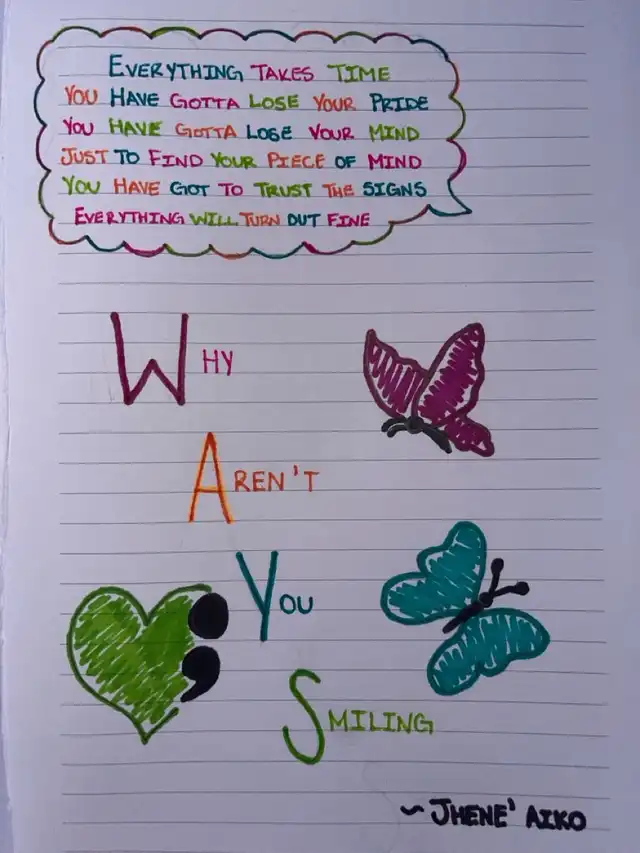 EVERYTHING TAKES TIME
YOU HAVE GOTTA LOSE YOUR PRIDE
YOU HAVE GOTTA LOSE YOUR MIND
JUST TO FIND YOUR PIECE OF MIND
YOU HAVE GOT TO TRUST THE SIGNS
EVERYTHING WILL TURN OUT FINE
WHY
AREN'T
YOU
SMILING
~ JHENE' AIKO